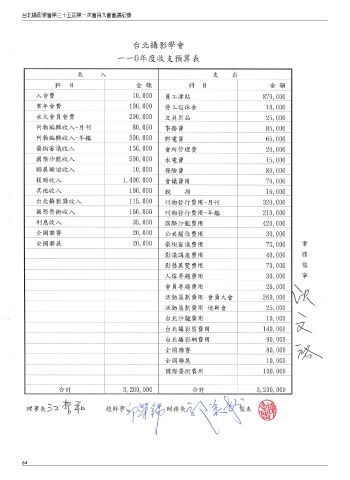 台北攝影學會第三十五屆第一次會員大會會議紀錄
台北攝影學會
一一0年度收支預算表
收 入 支 出
科 目 金 額 科 目 金 額
入會費 10,000 員工津貼 870,000
常年會費 100,000 勞工退休金 18,000
永久會員會費 200,000 文具用品 25,000
刊物編輯收入-月刊 80,000 事務費 85,000
刊物編輯收入-年鑑 300,000 郵電費 65,000
藝術審議收入 150,000 會所管理費 20,000
國際沙龍收入 500,000 水電費 15,000
聯展聯誼收入 10,000 保險費 80,000
捐贈收入 1,400,000 會議費用 70,000
其他收入 100,000 稅 捐 16,000
台北攝影獎收入 115,000 刊物發行費用-月刊 320,000
國際藝術收入 160,000 刊物發行費用-年鑑 210,000
利息收入 35,000 國際沙龍費用 420,000
全國聯審 20,000 公共關係費用 30,000
全國聯展 20,000 藝術審議費用 75,000
影藝講座費用 40,000
影藝展覽費用 70,000
人像專題費用 30,000
會員專題費用 26,000
活動策劃費用-會員大會 260,000
活動策劃費用-迎新會 25,000
台北沙龍費用 10,000
台北攝影獎費用 140,000
台北攝影網費用 90,000
全國聯審 80,000
全國聯展 10,000
國際藝術費用 100,000
合計 3,200,000 合計 3,200,000
理事長 總幹事 財務長 製表
64